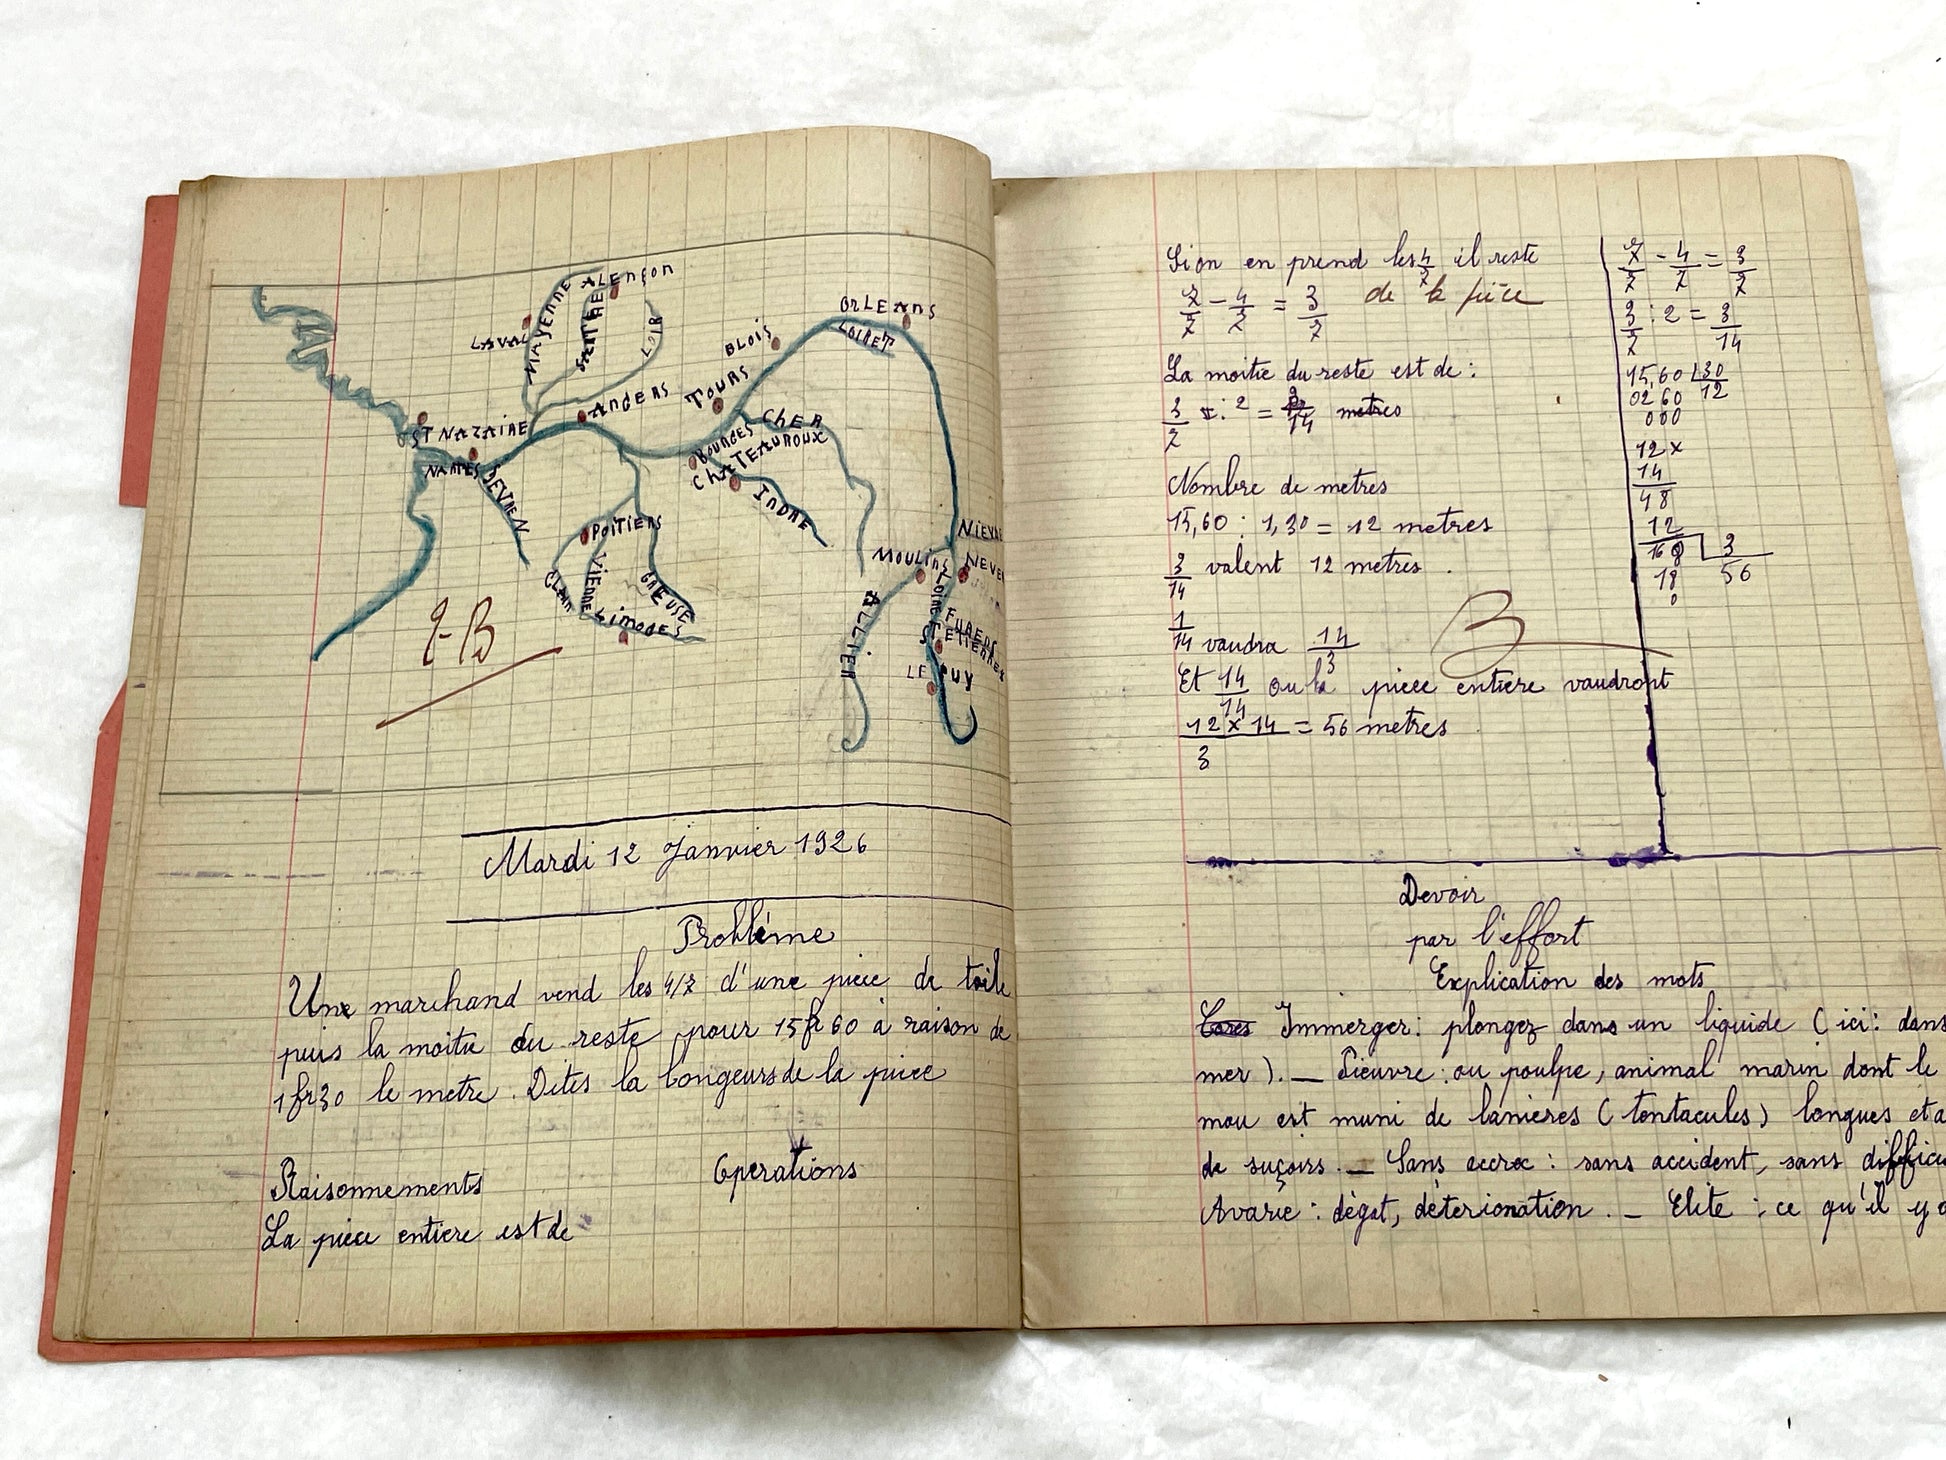 ALENÇON
MAYENNE
SARTHE
LOIR
LAVAL
ORLEANS
LOIRET
BLOIS
TOURS
ANGERS
CHER
ST NAZAIRE
BOURGES
CHATEAUROUX
NANTES
SEVRE N
INDRE
POITIERS
NIEVRE
MOULINS
NEVE
CLAIN
VIENNE
CREUSE
LIMOGES
ALLIER
LOIRE
FURENS
ST ETIENNE
LE PUY
E-B
Mardi 12 Janvier 1926
Problème
Une marchand vend les 4/7 d'une pièce de toile
puis la moitié du reste pour 15fr60 à raison de
1fr30 le metre. Dites la longeurs de la pièce
Raisonnements Operations
La pièce entière est de
Si on en prend les 4/7 il reste
7/7 - 4/7 = 3/7 de la pièce
La moitie du reste est de :
3/7 : 2 = 3/14 metres
Nombre de metres
15,60 : 1,30 = 12 metres
3/14 valent 12 metres.
1/14 vaudra 14/3
Et 14/14 ou la pièce entière vaudront
12 x 14 / 3 = 56 metres
B
7/7 - 4/7 = 3/7
3/7 : 2 = 3/14
15,60 | 30
02 60 12
000
12 x
14
48
12
168 | 3
18 56
0
Devoir
par l'effort
Explication des mots
Immerger : plongez dans un liquide (ici : dans
mer). — Pieuvre : ou poulpe, animal marin dont le
mou est muni de lanières (tentacules) longues et a
de suçoirs. — Sans accroc : sans accident, sans difficu
Avarie : dégat, déterionation. — Elite : ce qu'il y a